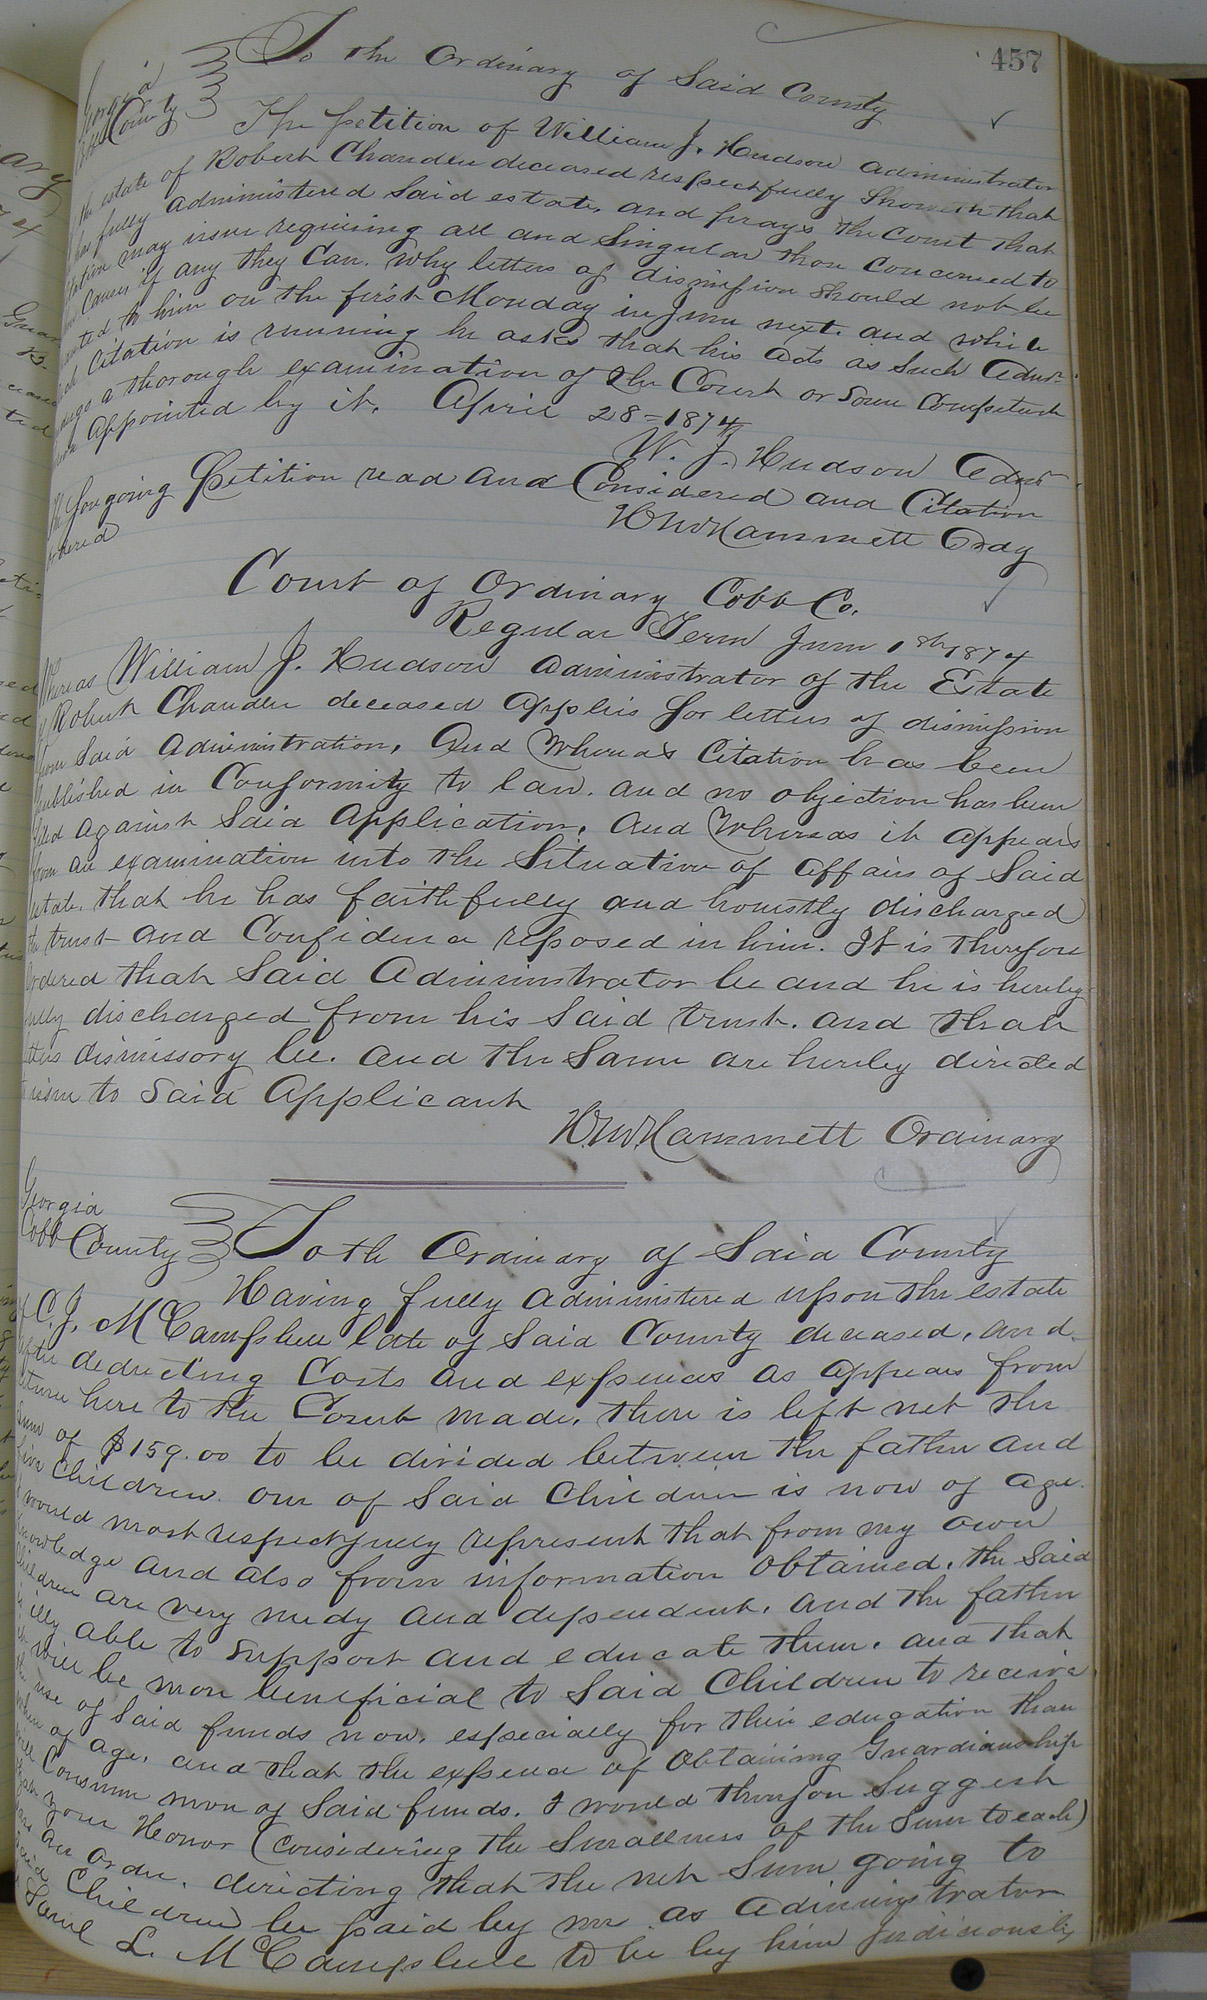 457
Georgia
Cobb County
To the Ordinary of Said County
The petition of William J. Hudson administrator
the estate of Robert Chandler deceased respectfully Showeth that
has fully administered Said estate, and prays the Court that
Citation may issue requiring all and Singular those Concerned to
Causes if any they Can. why letters of dismission should not be
granted to him on the first Monday in June next. and while
Citation is running he asks that his acts as Such Admr.
a thorough examination of the Court or Some Competent
person Appointed by it. April 28-1874
W. J. Hudson Admr
The foregoing petition read and Considered and Citation
ordered
H M Hammett Ordy
Court of Ordinary Cobb Co.
Regular Term June 1st 1874
Whereas William J. Hudson administrator of the Estate
of Robert Chandler deceased Applies for letters of dismission
from Said Administration, And Whereas Citation has been
published in Conformity to law. and no objection has been
filed against Said Application, And Whereas it appears
from an examination into the Situation of Affairs of Said
estate. that he has faithfully and honestly discharged
the trust and Confidence reposed in him. It is therefore
Ordered that Said Administrator be and he is hereby
fully discharged from his Said trust. and that
letters dismissory be. and the Same are hereby directed
to issue to Said Applicant
H M Hammett Ordinary
Georgia
Cobb County
To the Ordinary of Said County
Having fully administered upon the estate
of C. J. McCampbell late of Said County deceased, and
after deducting Costs and expences as appears from
return here to the Court made, there is left net the
Sum of $159.00 to be divided between the father and
five Children. one of Said Children is now of age.
I would most respectfully represent that from my own
knowledge and also from information obtained, the Said
Children are very needy and dependent. and the father
is illy able to support and educate them. and that
it will be more beneficial to Said Children to receive
the use of Said funds now, especially for their education than
when of age, and that the expence of obtaining Guardianship
will Consume more of Said funds. I would therefore Suggest
that your Honor (Considering the Smallness of the Sum to each)
pass an order, directing that the net Sum going to
Said Children be paid by me as administrator
Saml L. McCampbell to be by him judiciously